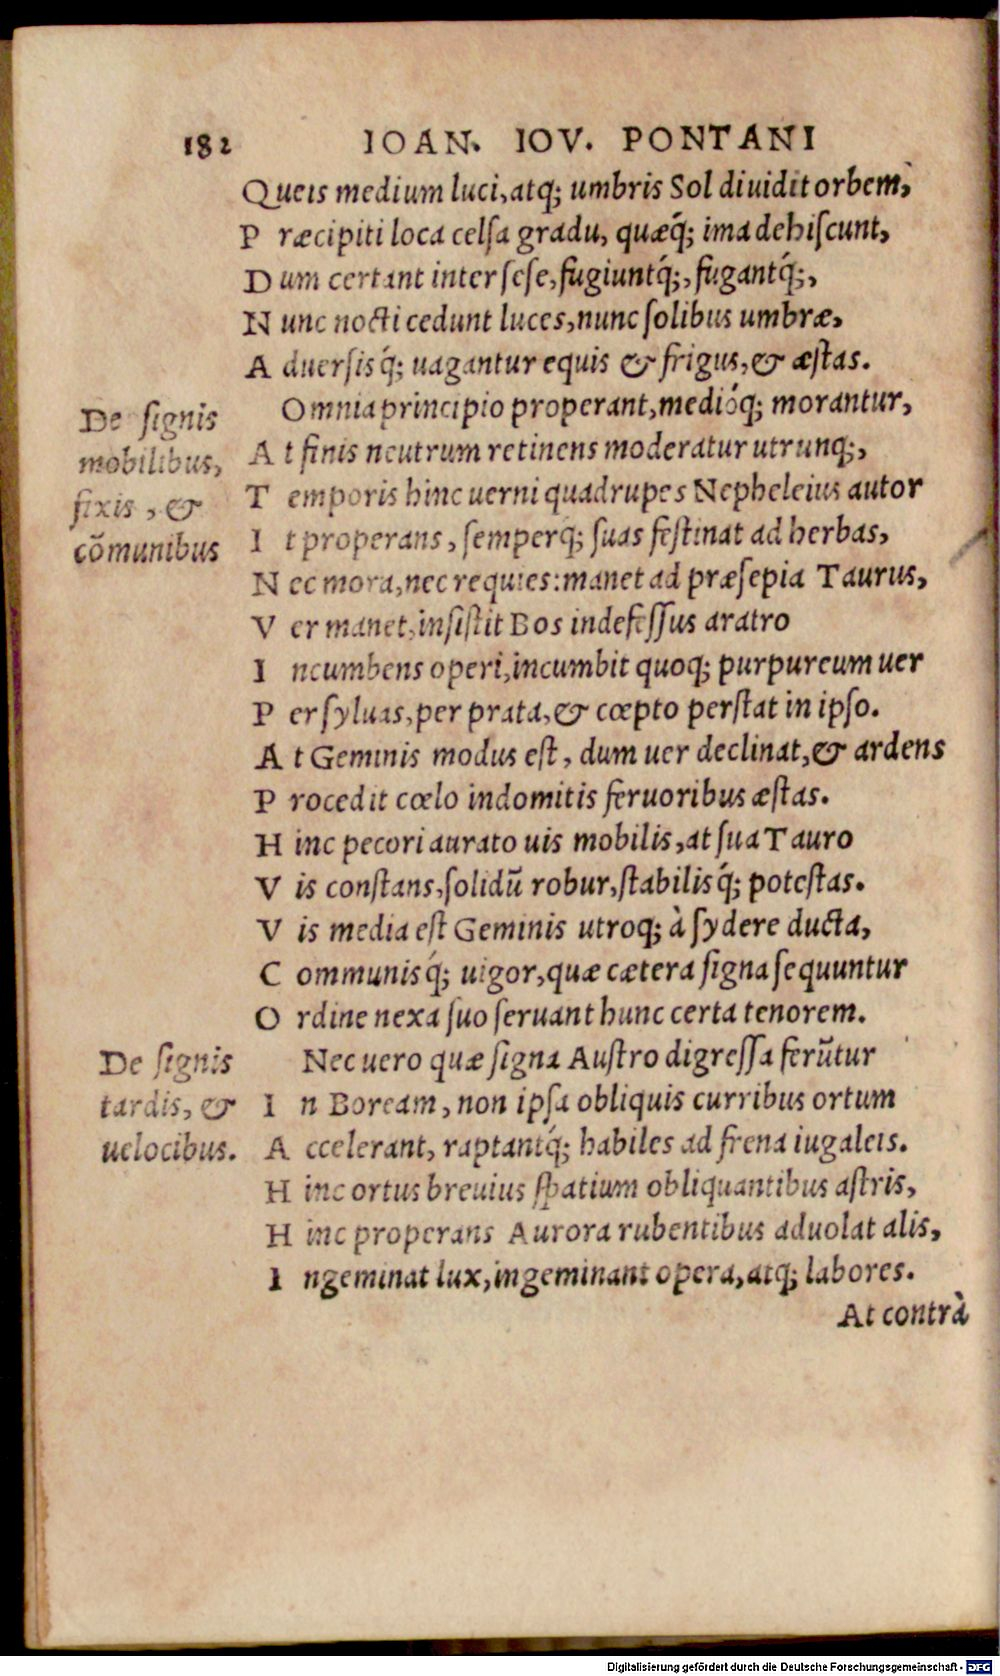 182 IOAN. IOV. PONTANI
Queis medium luci, atq; umbris Sol diuidit orbem,
Præcipiti loca celsa gradu, quæq́; ima dehiscunt,
Dum certant inter sese, fugiuntq́;, fugantq́;,
Nunc nocti cedunt luces, nunc solibus umbræ,
Aduersisq́; uagantur equis & frigus, & æstas.
Omnia principio properant, medióq; morantur,
At finis neutrum retinens moderatur utrunq;,
Temporis hinc uerni quadrupes Nepheleius autor
It properans, semperq; suas festinat ad herbas,
Nec mora, nec requies: manet ad præsepia Taurus,
Ver manet, insistit Bos indefessus aratro
Incumbens operi, incumbit quoq; purpureum uer
Per syluas, per prata, & cœpto perstat in ipso.
At Geminis modus est, dum uer declinat, & ardens
Procedit cœlo indomitis feruoribus æstas.
Hinc pecori aurato uis mobilis, at sua Tauro
Vis constans, solidū robur, stabilisq́; potestas.
Vis media est Geminis utroq; à sydere ducta,
Communisq́; uigor, quæ cætera signa sequuntur
Ordine nexa suo seruant hunc certa tenorem.
Nec uero quæ signa Austro digressa ferūtur
In Boream, non ipsa obliquis curribus ortum
Accelerant, raptantq́; habiles ad frena iugaleis.
Hinc ortus breuius spatium obliquantibus astris,
Hinc properans Aurora rubentibus aduolat alis,
Ingeminat lux, ingeminant opera, atq; labores.
At contrà
De signis
mobilibus,
fixis, &
cōmunibus
De signis
tardis, &
uelocibus.
Digitalisierung gefördert durch die Deutsche Forschungsgemeinschaft - DFG